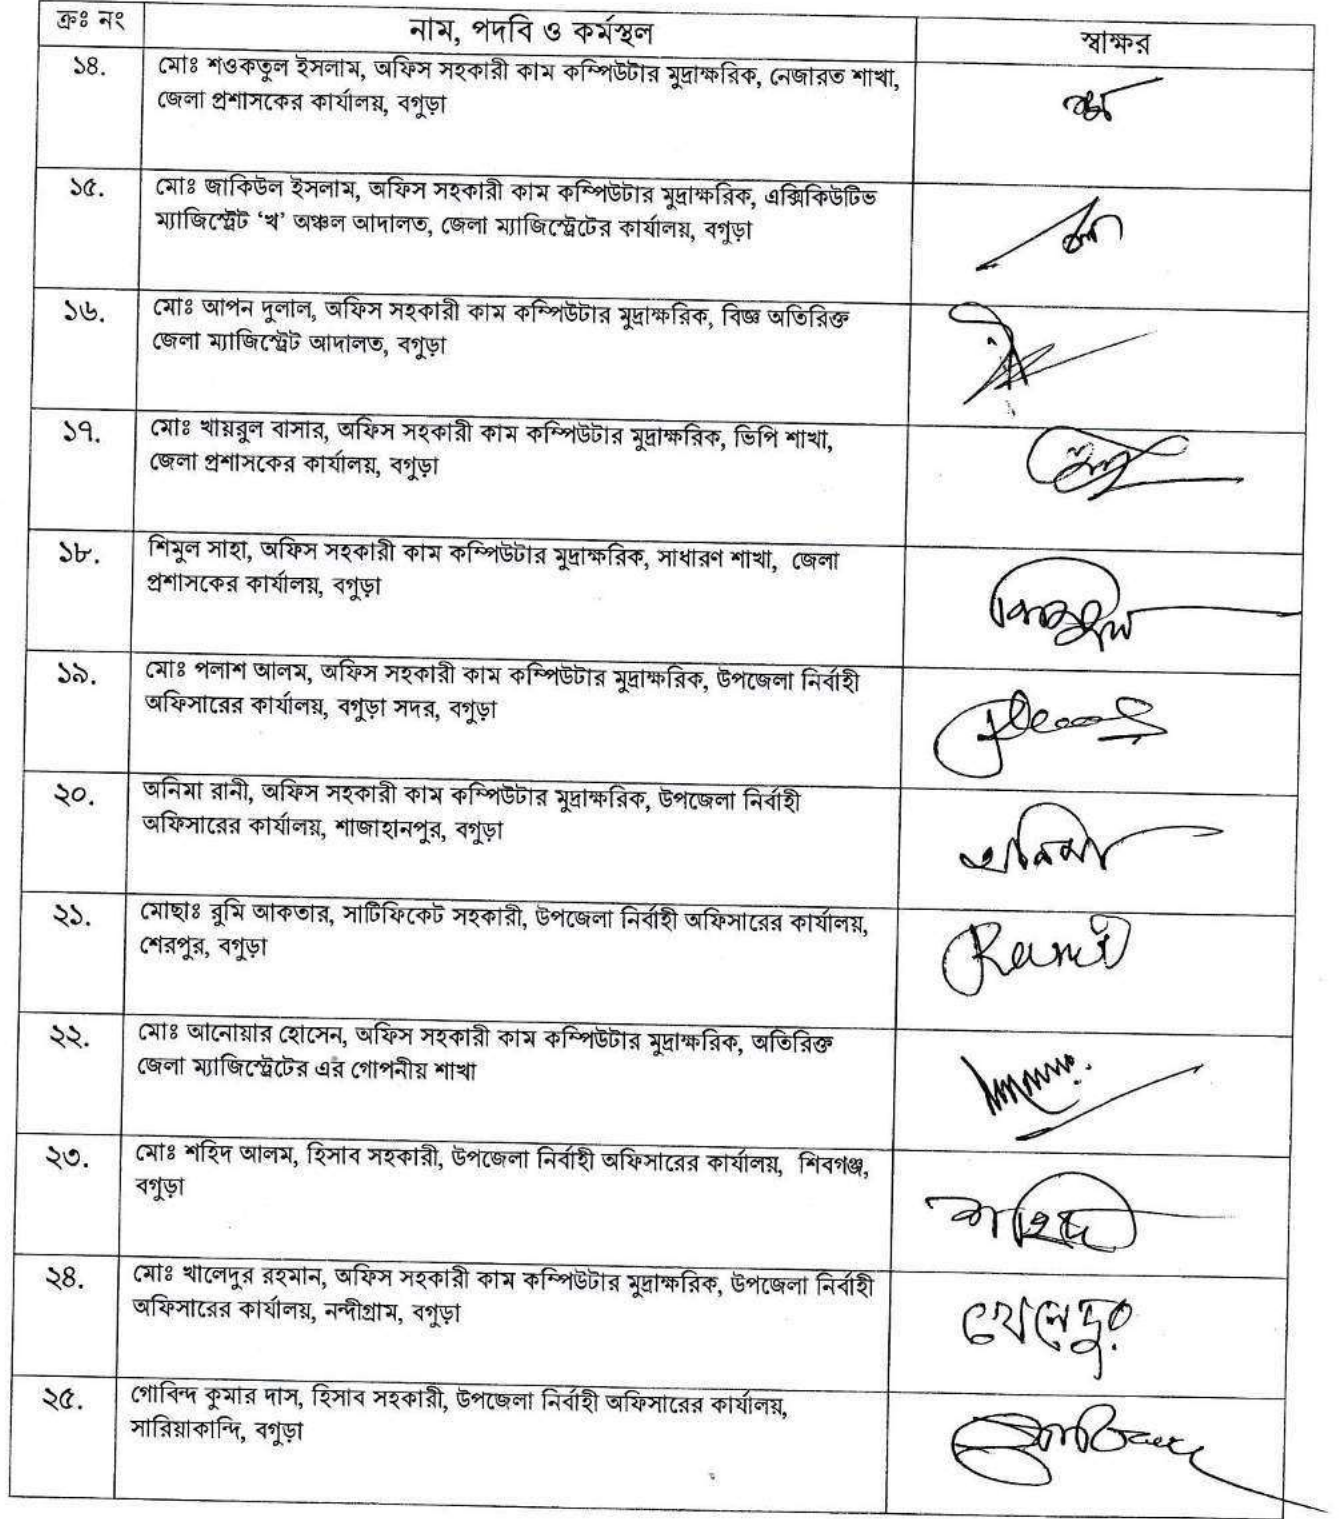 ক্রঃ নং নাম, পদবি ও কর্মস্থল স্বাক্ষর
১৪. মোঃ শওকতুল ইসলাম, অফিস সহকারী কাম কম্পিউটার মুদ্রাক্ষরিক, নেজারত শাখা,
জেলা প্রশাসকের কার্যালয়, বগুড়া
১৫. মোঃ জাকিউল ইসলাম, অফিস সহকারী কাম কম্পিউটার মুদ্রাক্ষরিক, এক্সিকিউটিভ
ম্যাজিস্ট্রেট ‘খ’ অঞ্চল আদালত, জেলা ম্যাজিস্ট্রেটের কার্যালয়, বগুড়া
১৬. মোঃ আপন দুলাল, অফিস সহকারী কাম কম্পিউটার মুদ্রাক্ষরিক, বিজ্ঞ অতিরিক্ত
জেলা ম্যাজিস্ট্রেট আদালত, বগুড়া
১৭. মোঃ খায়রুল বাসার, অফিস সহকারী কাম কম্পিউটার মুদ্রাক্ষরিক, ভিপি শাখা,
জেলা প্রশাসকের কার্যালয়, বগুড়া
১৮. শিমুল সাহা, অফিস সহকারী কাম কম্পিউটার মুদ্রাক্ষরিক, সাধারণ শাখা, জেলা
প্রশাসকের কার্যালয়, বগুড়া
১৯. মোঃ পলাশ আলম, অফিস সহকারী কাম কম্পিউটার মুদ্রাক্ষরিক, উপজেলা নির্বাহী
অফিসারের কার্যালয়, বগুড়া সদর, বগুড়া
২০. অনিমা রানী, অফিস সহকারী কাম কম্পিউটার মুদ্রাক্ষরিক, উপজেলা নির্বাহী
অফিসারের কার্যালয়, শাজাহানপুর, বগুড়া
অনিমা
২১. মোছাঃ রুমি আকতার, সার্টিফিকেট সহকারী, উপজেলা নির্বাহী অফিসারের কার্যালয়,
শেরপুর, বগুড়া
Rumi
২২. মোঃ আনোয়ার হোসেন, অফিস সহকারী কাম কম্পিউটার মুদ্রাক্ষরিক, অতিরিক্ত
জেলা ম্যাজিস্ট্রেটের এর গোপনীয় শাখা
২৩. মোঃ শহিদ আলম, হিসাব সহকারী, উপজেলা নির্বাহী অফিসারের কার্যালয়, শিবগঞ্জ,
বগুড়া
শহিদ
২৪. মোঃ খালেদুর রহমান, অফিস সহকারী কাম কম্পিউটার মুদ্রাক্ষরিক, উপজেলা নির্বাহী
অফিসারের কার্যালয়, নন্দীগ্রাম, বগুড়া
খালেদুর
২৫. গোবিন্দ কুমার দাস, হিসাব সহকারী, উপজেলা নির্বাহী অফিসারের কার্যালয়,
সারিয়াকান্দি, বগুড়া